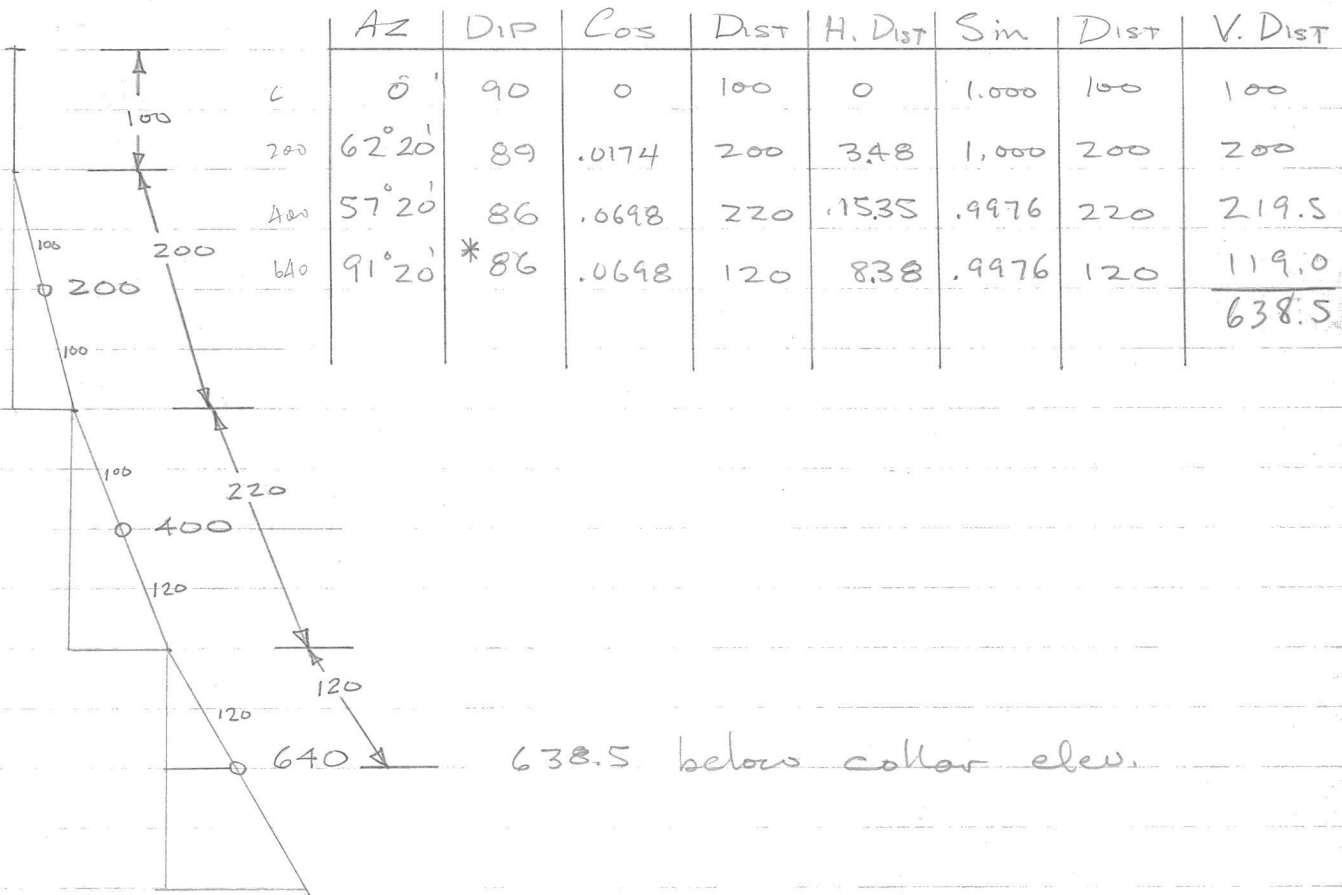 Az Dip Cos Dist H. Dist Sin Dist V. Dist
C 0° ' 90 0 100 0 1.000 100 100
200 62° 20' 89 .0174 200 3.48 1.000 200 200
400 57° 20' 86 .0698 220 .15.35 .9976 220 219.5
640 91° 20' * 86 .0698 120 8.38 .9976 120 119.0
638.5
100
100
200
200
100
100
220
400
120
120
120
640
638.5 below collar elev.